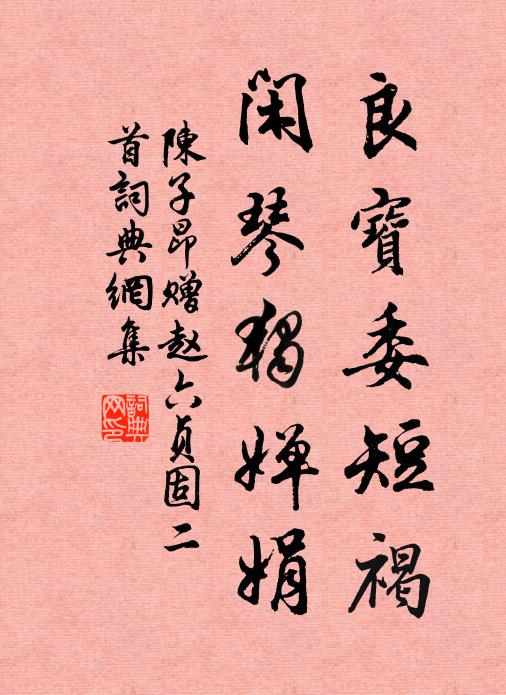 良寶委短褐
閑琴獨嬋娟
陳子昂赠赵六貞固二
首詞典網集
詞典网印